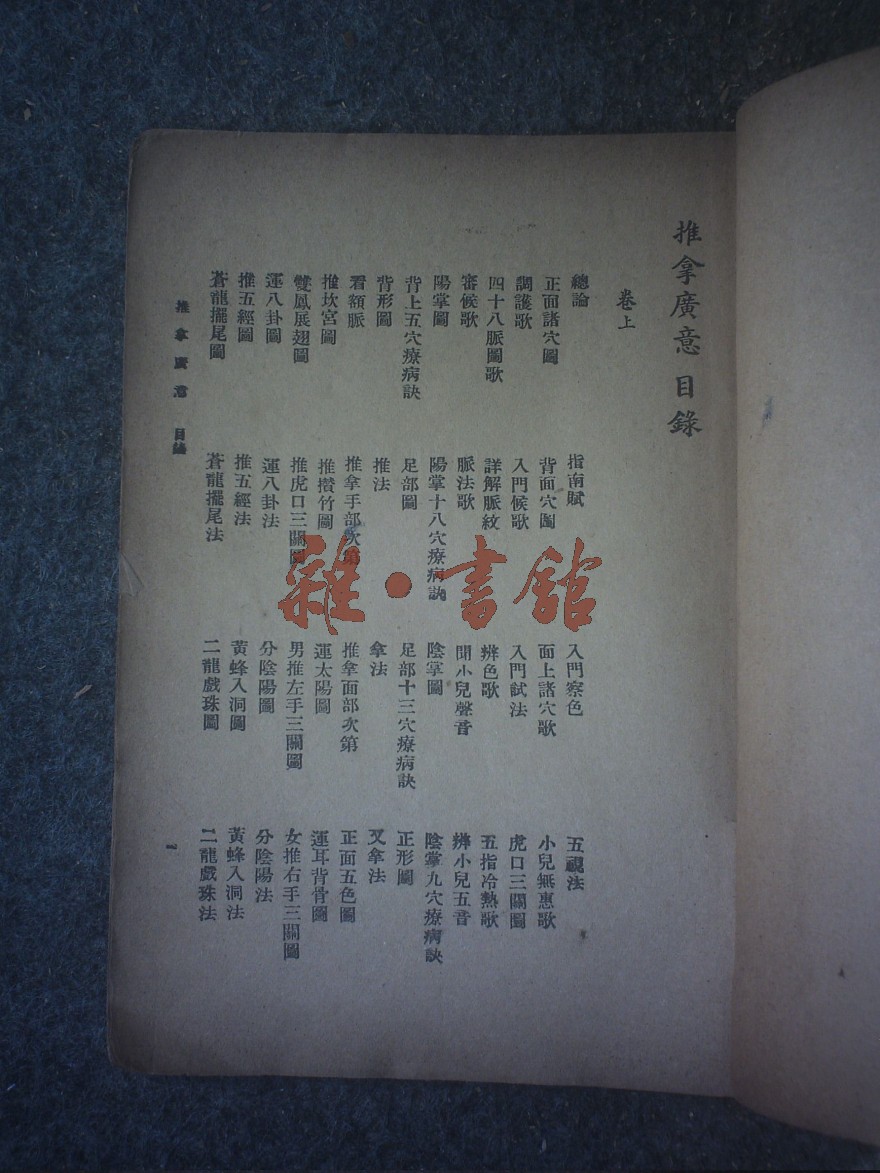 推拿廣意目錄
卷上
總論　指南賦　入門察色　五視法
正面諸穴圖　背面穴圖　面上諸穴歌　小兒無患歌
調護歌　入門候歌　入門試法　虎口三關圖
四十八脈圖歌　詳解脈紋　辨色歌　五指冷熱歌
審候歌　脈法歌　聞小兒聲音　辨小兒五音
陽掌圖　陽掌十八穴療病訣　陰掌圖　陰掌九穴療病訣
背上五穴療病訣　足部圖　足部十三穴療病訣　正形圖
背形圖　推法　拿法　又拿法
看額脈　推拿手部次第　推拿面部次第　正面五色圖
推坎宮圖　推攢竹圖　運太陽圖　運耳背骨圖
雙鳳展翅圖　推虎口三關圖　男推左手三關圖　女推右手三關圖
運八卦圖　運八卦法　分陰陽圖　分陰陽法
推五經圖　推五經法　黃蜂入洞圖　黃蜂入洞法
蒼龍擺尾圖　蒼龍擺尾法　二龍戲珠圖　二龍戲珠法
推拿廣意　目錄　一
雜·書館